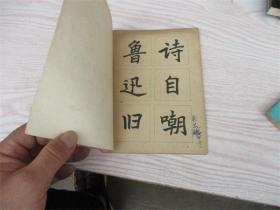 鲁迅旧
诗自嘲